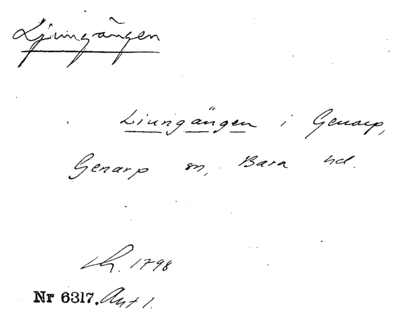 Ljungängen
Liungängen i Genarp,
Genarp sn, Bara hd.
Lh. 1798
Nr 6317. Akt 1.